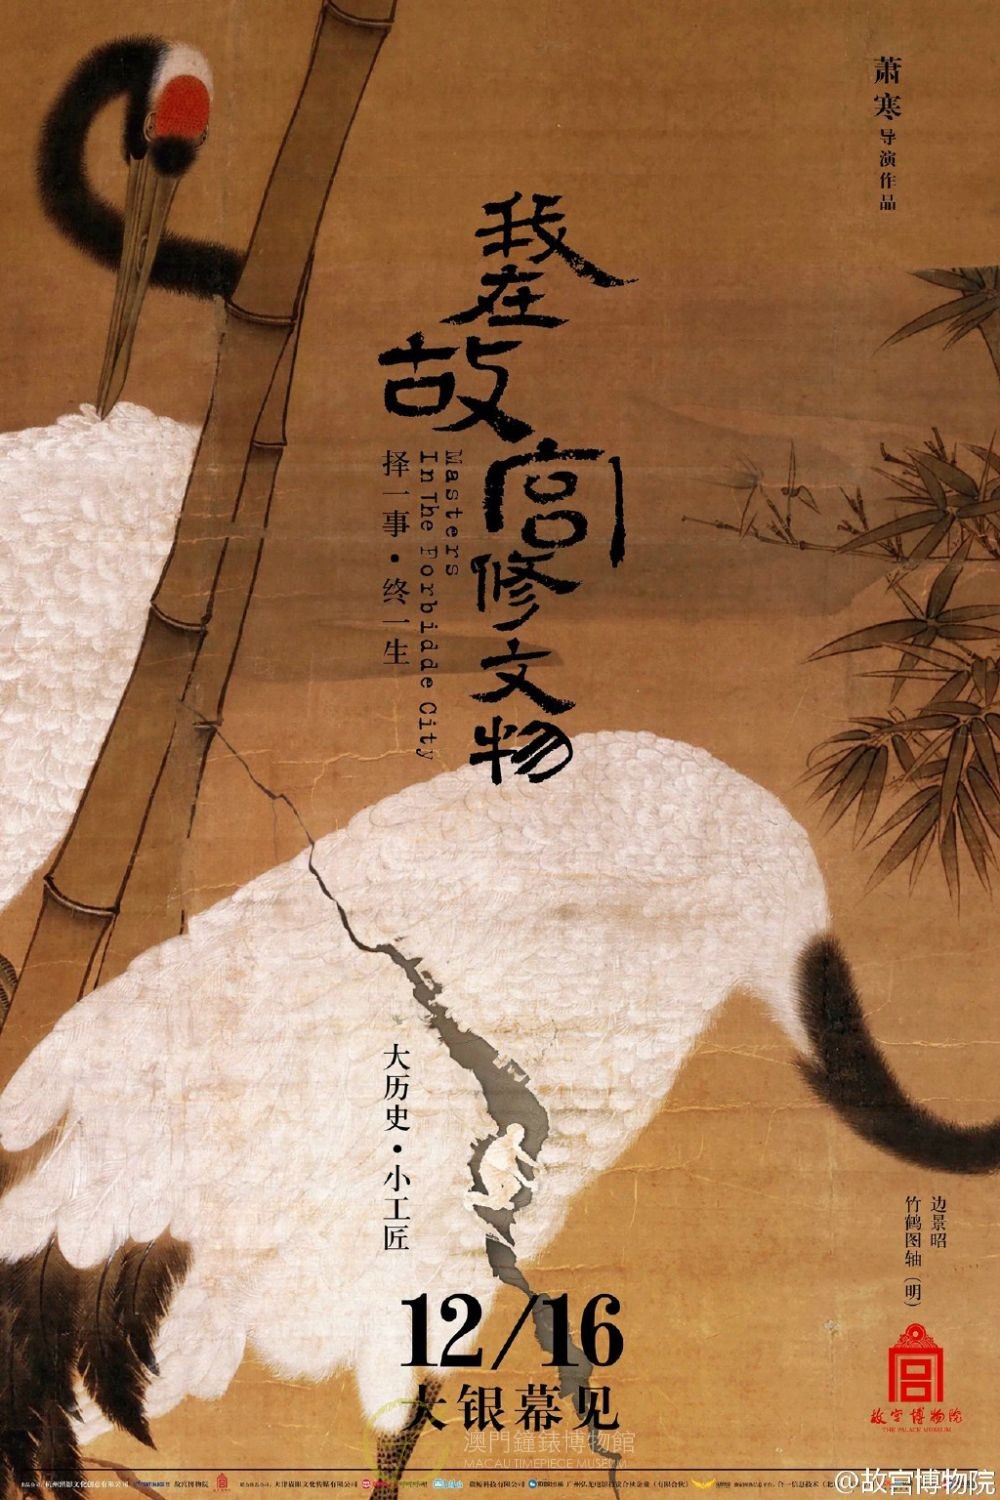 萧寒导演作品
我在故宫修文物
Masters
In The Forbidde City
择一事·终一生
大历史·小工匠
边景昭
竹鹤图轴(明)
12/16
大银幕见
故宫博物院
THE PALACE MUSEUM
澳門鐘錶博物館
MACAU TIMEPIECE MUSEUM
@故宫博物院